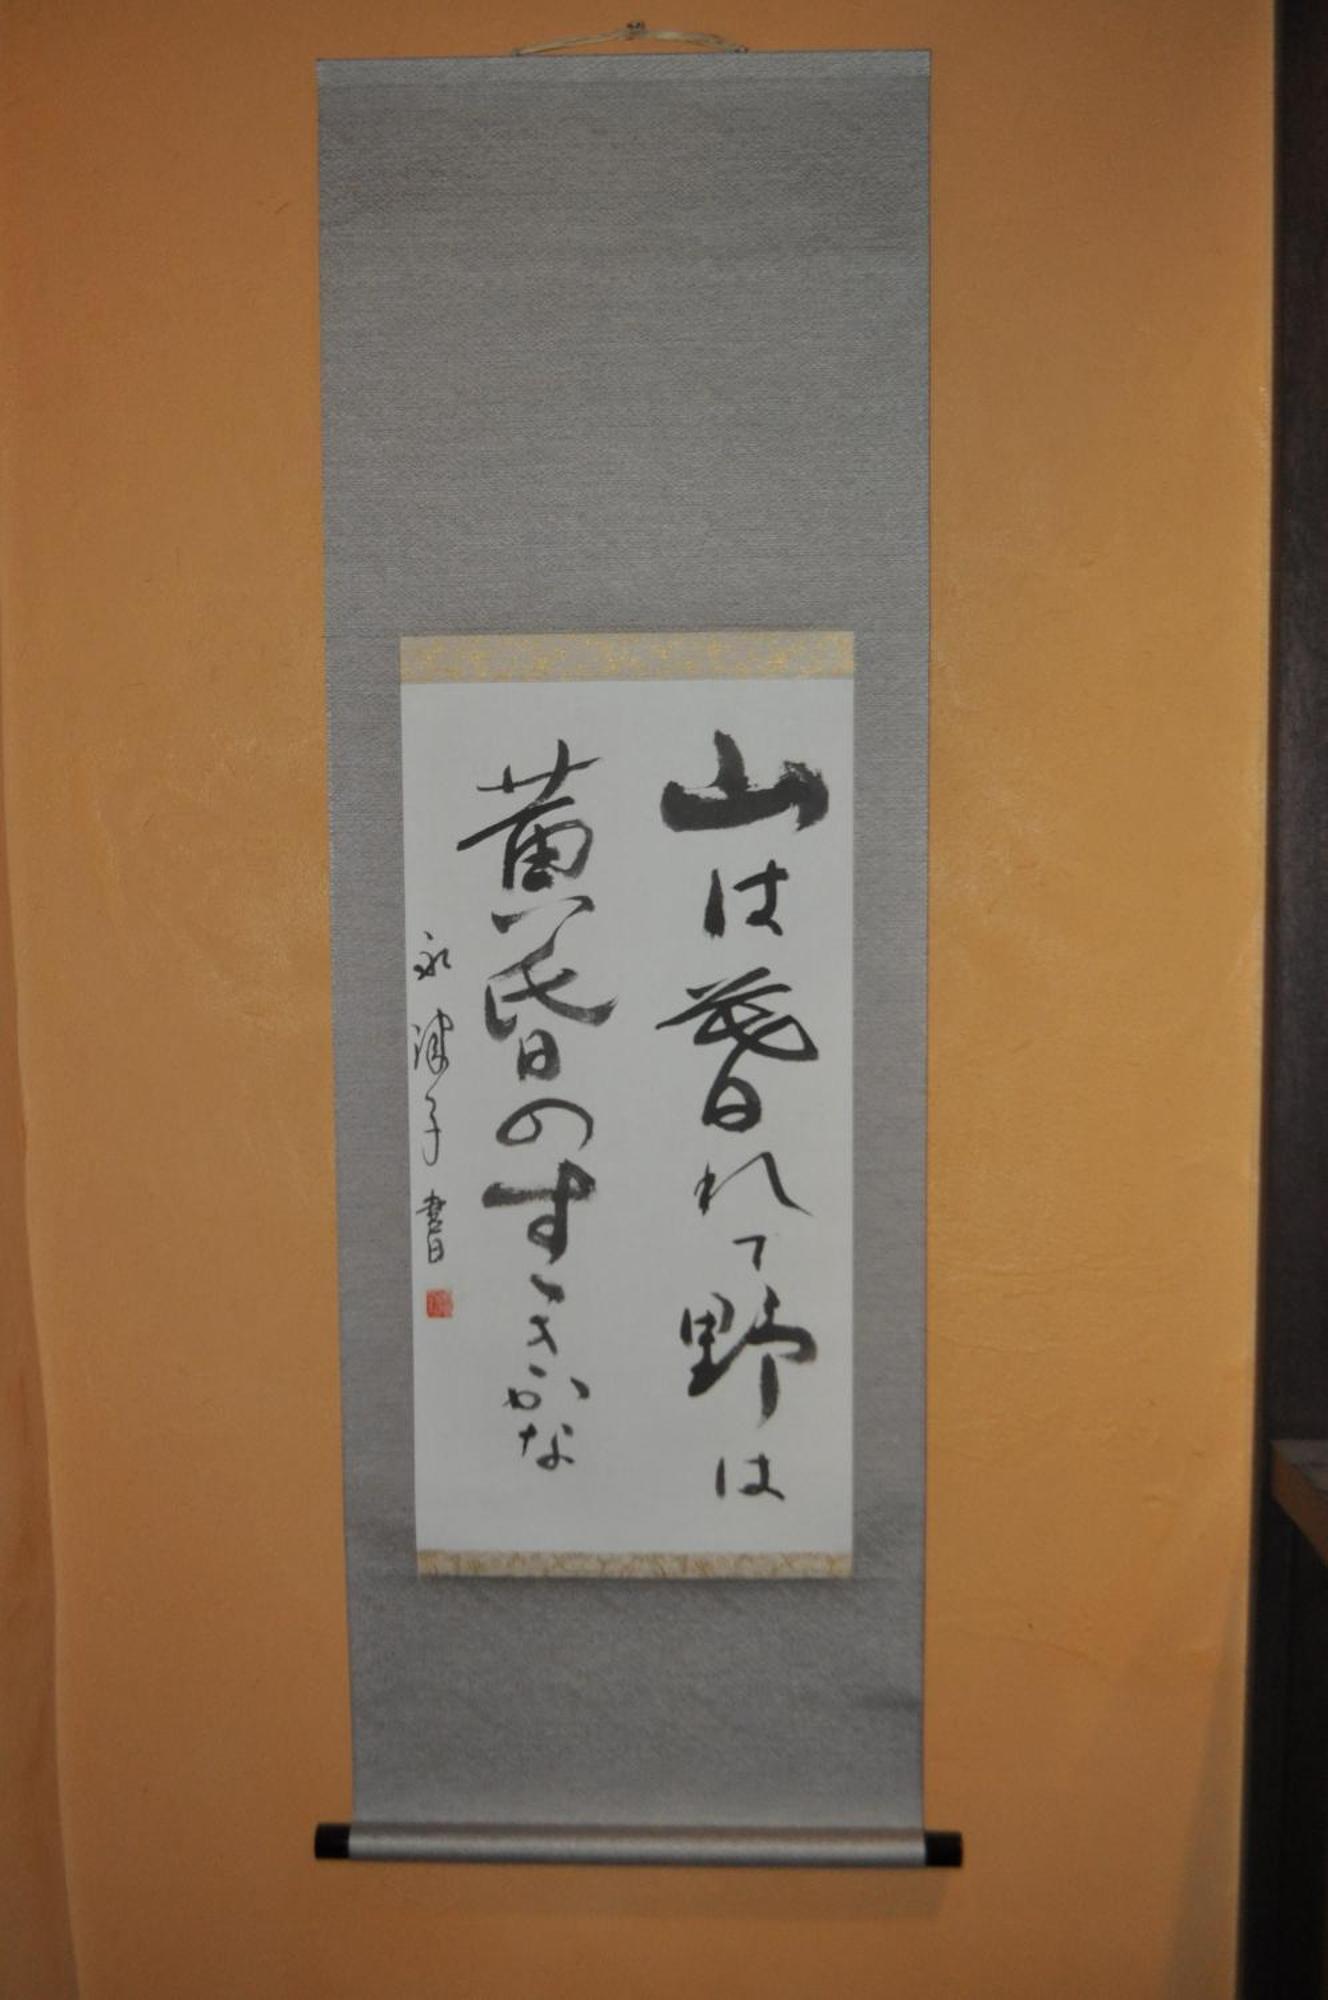 山は暮れて野は
黄昏のすゝきかな
永津子書